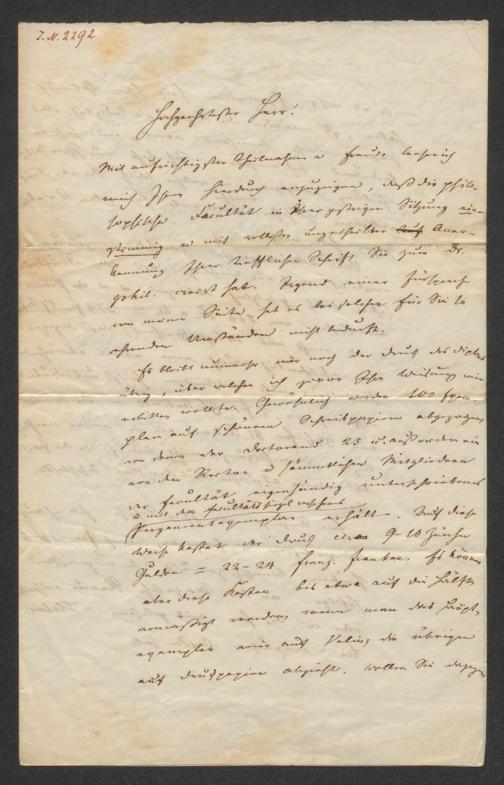 J.N. 2292
Hochgeehrtester Herr!
Mit aufrichtigster Theilnahme u Freude beehre ich
mich Ihnen hierdurch anzuzeigen, daß die philo-
sophische Facultät in ihrer gestrigen Sitzung ein-
stimmig u mit vollster ungetheilter Aner-
kennung Ihrer trefflichen Schrift Sie zum Dr.
phil. creirt hat. Irgend einer Fürsprach
von meiner Seite hat es bei solchen für Sie so
ehrenden Umständen nicht bedurft.
Es bleibt nunmehr nur noch der Druck des Diploms
übrig, über welchen ich zuvor Ihre Weisung mir
erbitten wollte. Gewöhnlich werden 100 Exem-
plare auf schönem Schreibpapier abgezogen,
von denen der Doctorand 25 u. außerdem ein
von dem Rector u sämmtlichen Mitgliedern
der Facultät eigenhändig unterschriebenes
u mit dem Facultätssiegel versehenes
Pergamentexemplar erhält. Auf diese
Weise kostet der Druck circa 9-10 Zürcher
Gulden = 22-24 franz. Franken. Es können
aber diese Kosten bis etwa auf die Hälfte
ermässigt werden, wenn man das Haupt-
exemplar nur auf Velin, die übrigen
auf Druckpapier abzieht. Wollen Sie dagegen